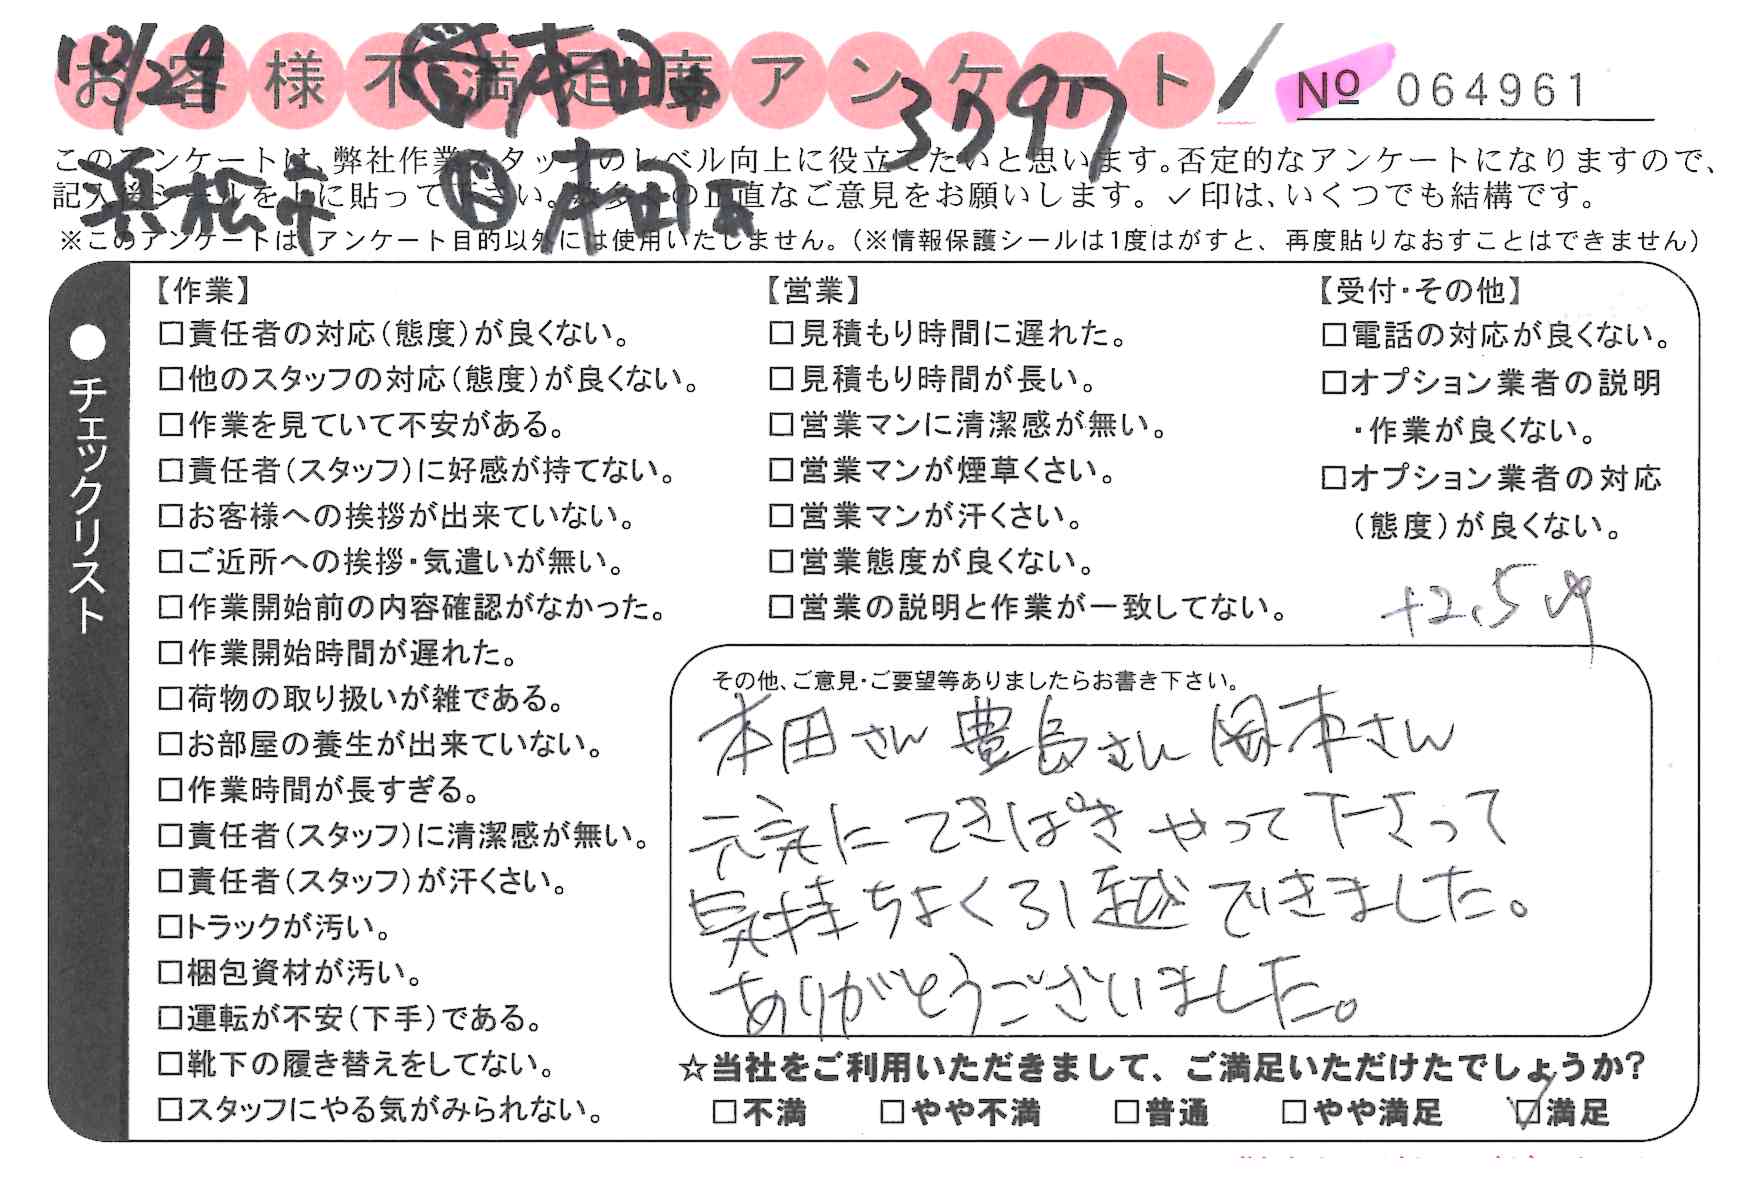 お客様不満足度アンケート
№ 064961
10/29 本田 3797
浜松市 本田
このアンケートは、弊社作業スタッフのレベル向上に役立てたいと思います。否定的なアンケートになりますので、
記入後シールを上に貼って下さい。数多くの正直なご意見をお願いします。✓印は、いくつでも結構です。
※このアンケートは、アンケート目的以外には使用いたしません。(※情報保護シールは1度はがすと、再度貼りなおすことはできません)
●チェックリスト
【作業】
□責任者の対応(態度)が良くない。
□他のスタッフの対応(態度)が良くない。
□作業を見ていて不安がある。
□責任者(スタッフ)に好感が持てない。
□お客様への挨拶が出来ていない。
□ご近所への挨拶・気遣いが無い。
□作業開始前の内容確認がなかった。
□作業開始時間が遅れた。
□荷物の取り扱いが雑である。
□お部屋の養生が出来ていない。
□作業時間が長すぎる。
□責任者(スタッフ)に清潔感が無い。
□責任者(スタッフ)が汗くさい。
□トラックが汚い。
□梱包資材が汚い。
□運転が不安(下手)である。
□靴下の履き替えをしてない。
□スタッフにやる気がみられない。
【営業】
□見積もり時間に遅れた。
□見積もり時間が長い。
□営業マンに清潔感が無い。
□営業マンが煙草くさい。
□営業マンが汗くさい。
□営業態度が良くない。
□営業の説明と作業が一致してない。
【受付・その他】
□電話の対応が良くない。
□オプション業者の説明
・作業が良くない。
□オプション業者の対応
(態度)が良くない。
+2.5
その他、ご意見・ご要望等ありましたらお書き下さい。
本田さん 豊島さん 岡本さん
元気に てきぱき やって下さって
気持ちよく引越できました。
ありがとうございました。
☆当社をご利用いただきまして、ご満足いただけたでしょうか?
□不満 □やや不満 □普通 □やや満足 ☑満足